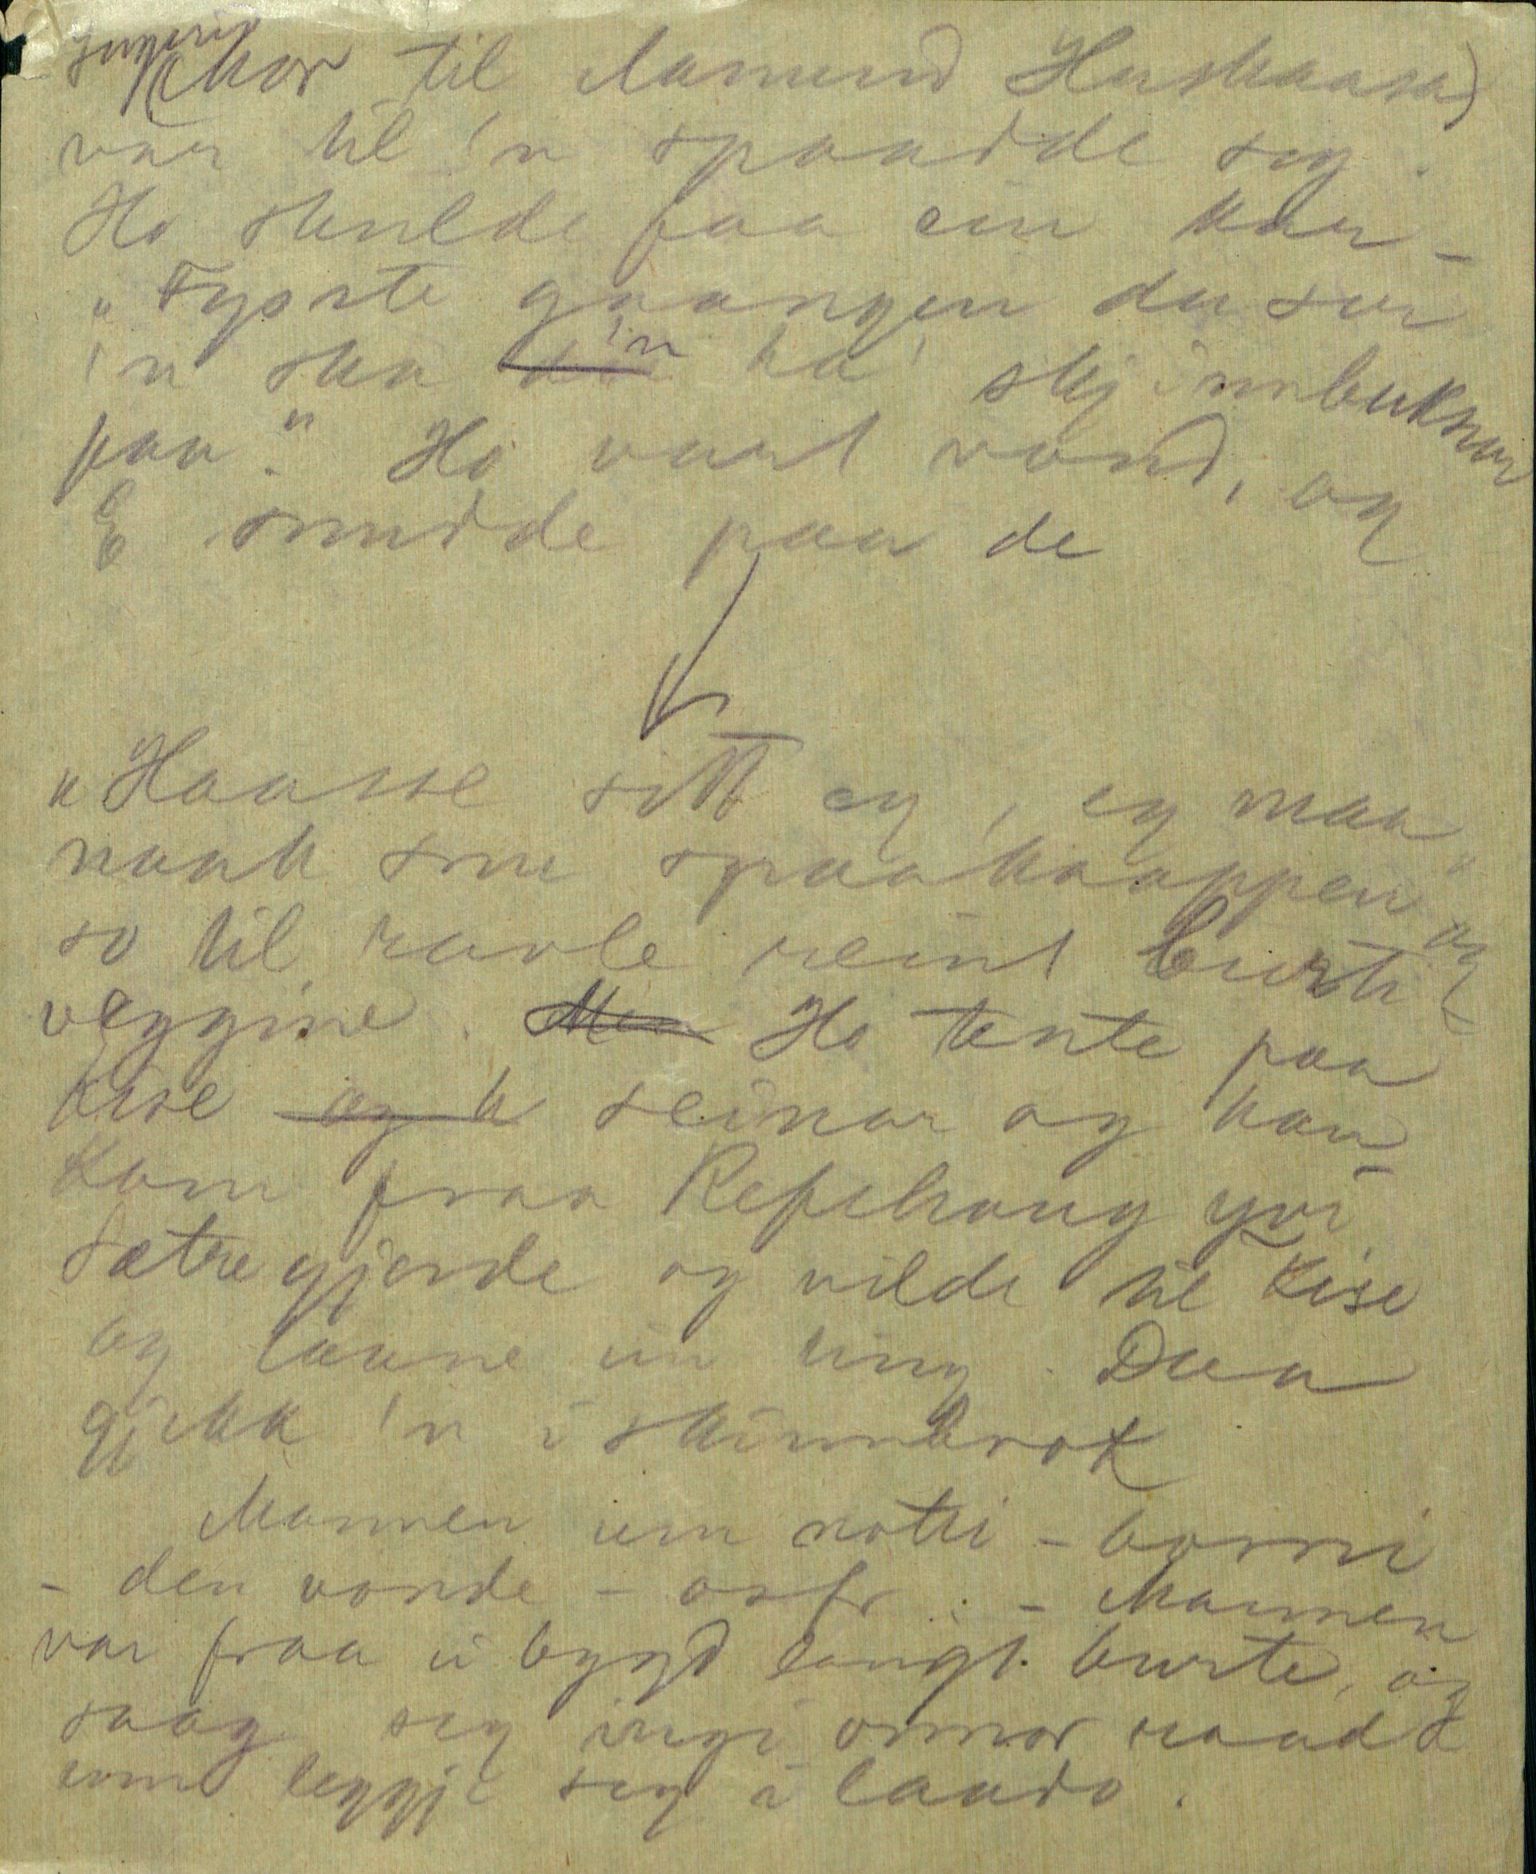 Ingerid
(Mor til Aamund Huskaasa)
var til 'n spaadde seg.
Ho skulde faa ein kar –
"Fysste gaangen du ser
'n ska 'n ha' skjinnbuksur
paa." Ho vart vond, og
E snudde paa de
"Haasse sitt eg, eg maa
naak sme spaakaappen" og
so til ravle reint burti
veggine. Men Ho tente paa
Kise og h seinar og han
kom fraa Refshaug yvi
Sætregjerde og vilde til Kise
og laane ein ting. Daa
gjekk 'n i skinnbrok
Mannen um notti – borni
– den vonde – osfr. – Mannen
var fraa ei bygd langt burte, og
saag seg ingi onnor raad
enn leggje seg i laado.